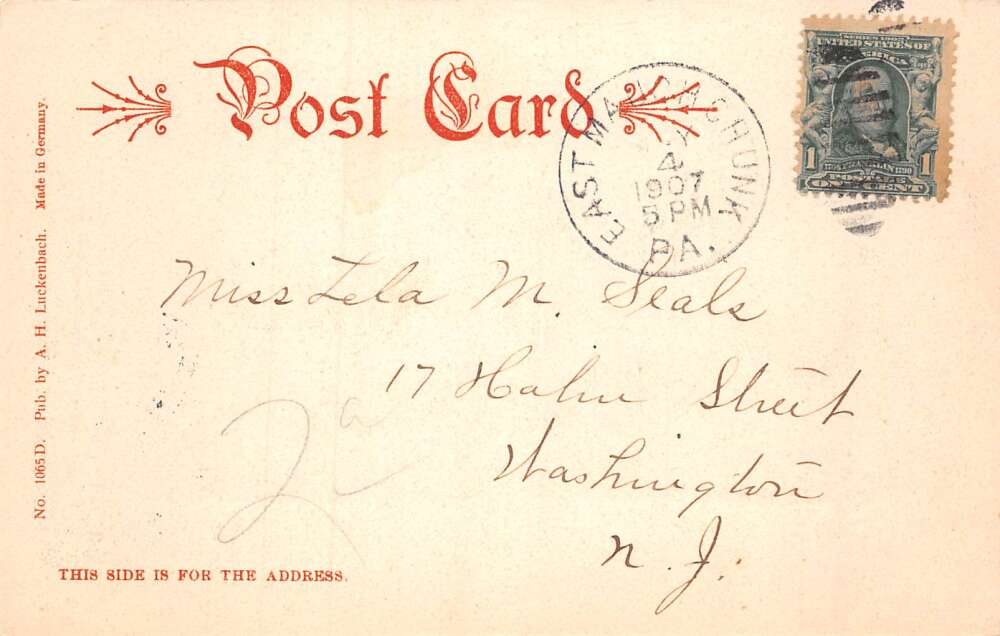 Post Card
EAST MAUCH CHUNK
4
1907
5 PM
PA.
SERIES 1902
UNITED STATES OF
AMERICA
1 FRANKLIN 1790 1
POSTAGE
ONE CENT
Miss Lela M. Seals
17 Hahn Street
Washington
N. J.
No. 1065 D. Pub. by A. H. Luckenbach. Made in Germany.
THIS SIDE IS FOR THE ADDRESS.